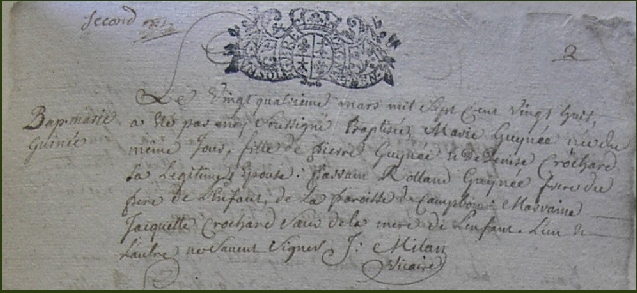 Second
2
Le Vingt quatrieme mars mil Sept Cent vingt huit,
Bap. marie
Guinée
a Eté par moy Soussigné Baptisée Marie Guynée née du
même Jour, fille de pierre Guynée & de Denise Crochard
Sa Legitime Epouse: Parrain Rolland Guynée frere du
pere de L'enfant, de la paroisse de Campbon: Marraine
Jacquette Crochard Sœur de la mere de L'enfant. L'un &
L'autre ne Savent Signer J: Milan
Vicaire